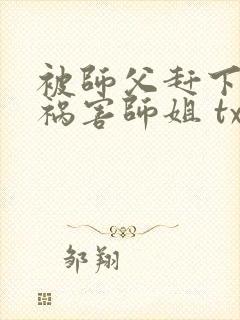 被師父赶下
祸害師姐 tx
邹翔